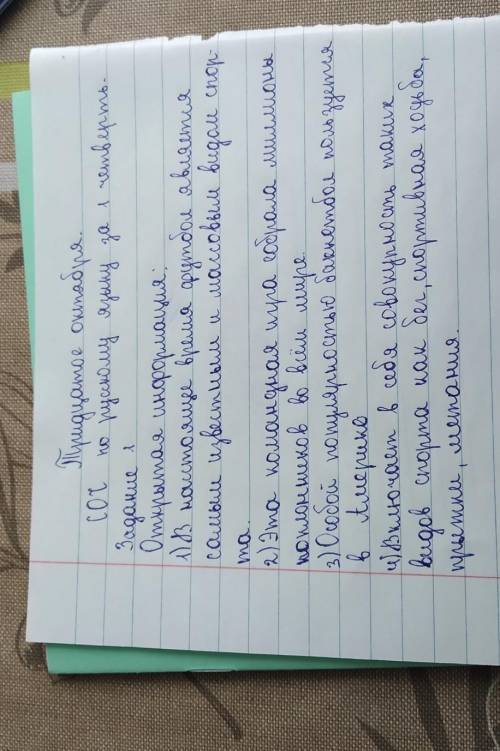 Тридцатое октября.
СОЧ по русскому языку за 1 четверть.
Задание 1
Открытая информация:
1) В настоящие время футбол является
самым известным и массовым видом спор-
та.
2) Эта командная игра собрала миллионы
поклонников во всём мире.
3) Особой популярностью баскетбол пользуется
в Америке
4) Включает в себя совокупность таких
видов спорта как бег, спортивная ходьба,
прыжки, метания.